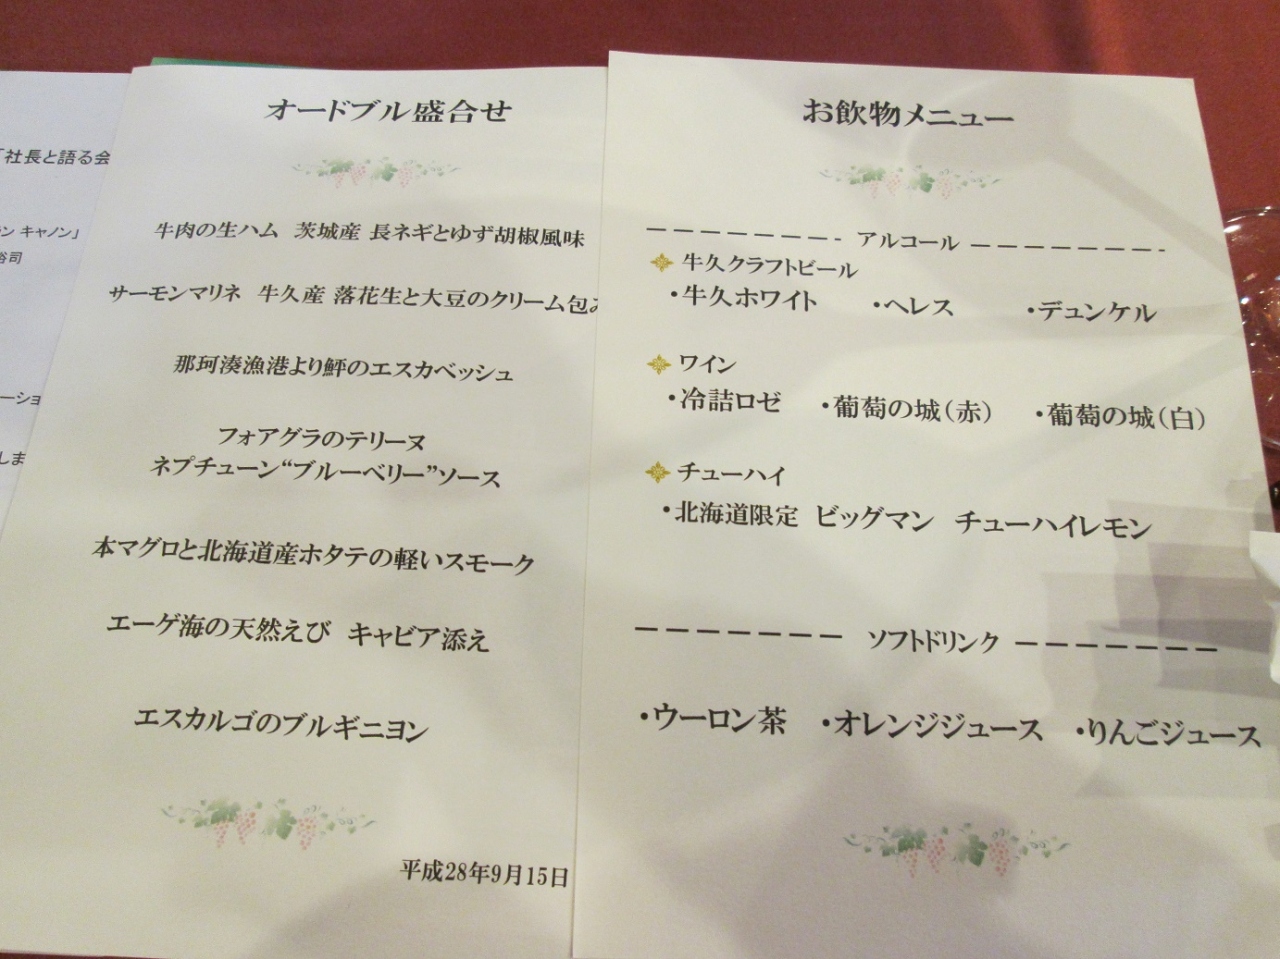 「社長と語る会
ン キャノン」
裕司
ーショ
しま
オードブル盛合せ
牛肉の生ハム 茨城産 長ネギとゆず胡椒風味
サーモンマリネ 牛久産 落花生と大豆のクリーム包み
那珂湊漁港より鮃のエスカベッシュ
フォアグラのテリーヌ
ネプチューン“ブルーベリー”ソース
本マグロと北海道産ホタテの軽いスモーク
エーゲ海の天然えび キャビア添え
エスカルゴのブルギニヨン
平成28年9月15日
お飲物メニュー
アルコール
牛久クラフトビール
・牛久ホワイト ・ヘレス ・デュンケル
ワイン
・冷詰ロゼ ・葡萄の城(赤) ・葡萄の城(白)
チューハイ
・北海道限定 ビッグマン チューハイレモン
ソフトドリンク
・ウーロン茶 ・オレンジジュース ・りんごジュース